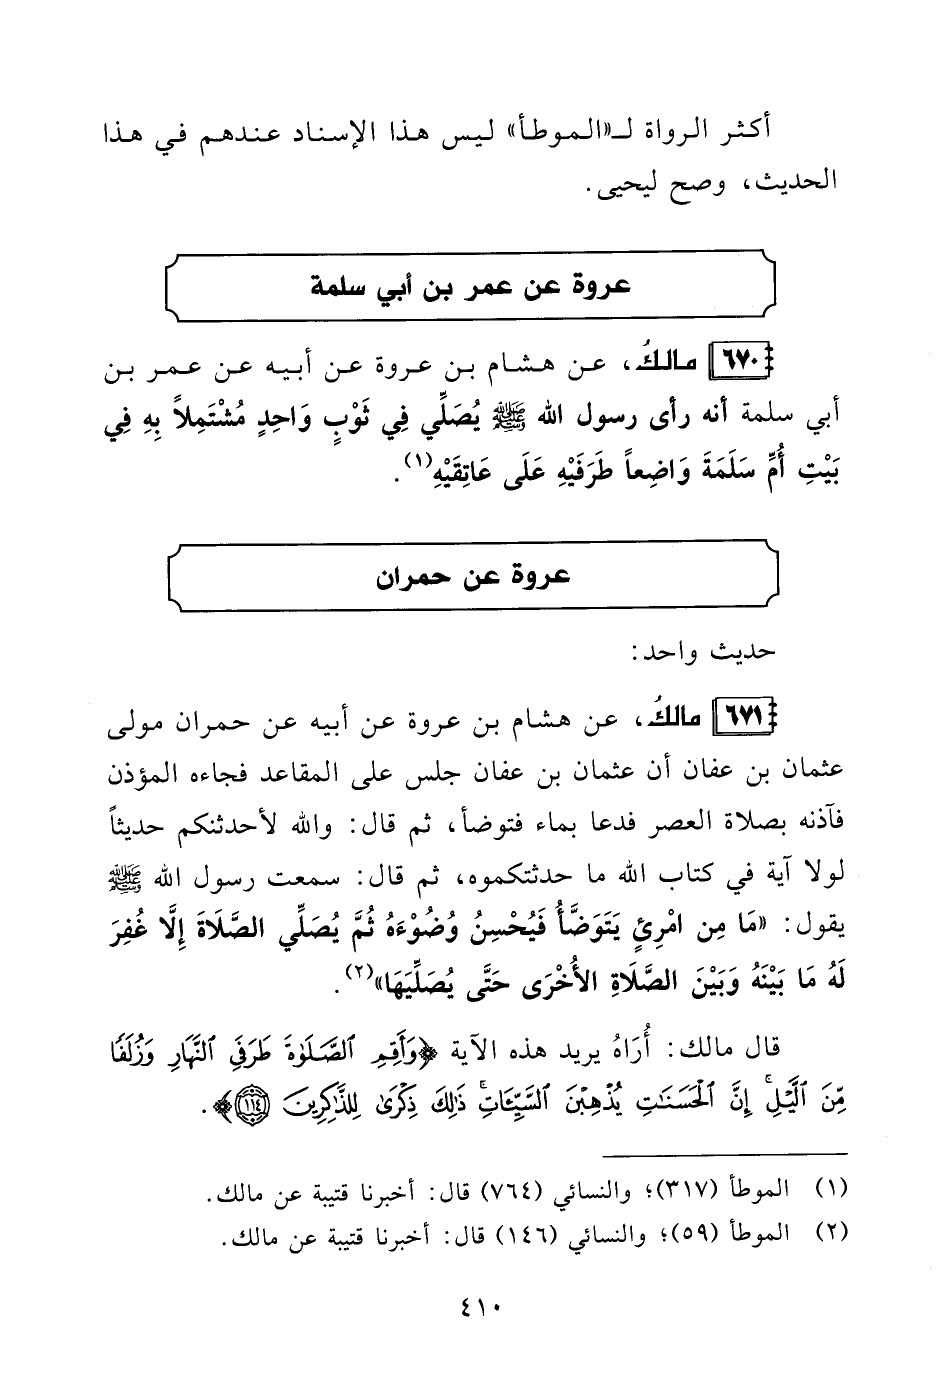 أكثر الرواة لـ«الموطأ» ليس هذا الإسناد عندهم في هذا
الحديث، وصح ليحيى.
عروة عن عمر بن أبي سلمة
٦٧٠ مالكُ، عن هشام بن عروة عن أبيه عن عمر بن
أبي سلمة أنه رأى رسول الله ﷺ يُصَلِّي فِي ثَوْبٍ وَاحِدٍ مُشْتَمِلاً بِهِ فِي
بَيْتِ أُمِّ سَلَمَةَ وَاضِعاً طَرَفَيْهِ عَلَى عَاتِقَيْهِ(١).
عروة عن حمران
حديث واحد:
٦٧١ مالكُ، عن هشام بن عروة عن أبيه عن حمران مولى
عثمان بن عفان أن عثمان بن عفان جلس على المقاعد فجاءه المؤذن
فآذنه بصلاة العصر فدعا بماء فتوضأ، ثم قال: والله لأحدثنكم حديثاً
لولا آية في كتاب الله ما حدثتكموه، ثم قال: سمعت رسول الله ﷺ
يقول: «مَا مِن امْرِئٍ يَتَوَضَّأُ فَيُحْسِنُ وُضُوْءَهُ ثُمَّ يُصَلِّي الصَّلَاةَ إِلَّا غُفِرَ
لَهُ مَا بَيْنَهُ وَبَيْنَ الصَّلَاةِ الأُخْرَى حَتَّى يُصَلِّيَهَا»(٢).
قال مالك: أُرَاهُ يريد هذه الآية ﴿وَأَقِمِ ٱلصَّلَوٰةَ طَرَفَىِ ٱلنَّهَارِ وَزُلَفًا
مِّنَ ٱلَّيْلِۚ إِنَّ ٱلْحَسَنَٰتِ يُذْهِبْنَ ٱلسَّيِّـَٔاتِۚ ذَٰلِكَ ذِكْرَىٰ لِلذَّٰكِرِينَ ١١٤﴾.
(١) الموطأ (٣١٧)؛ والنسائي (٧٦٤) قال: أخبرنا قتيبة عن مالك.
(٢) الموطأ (٥٩)؛ والنسائي (١٤٦) قال: أخبرنا قتيبة عن مالك.
٤١٠